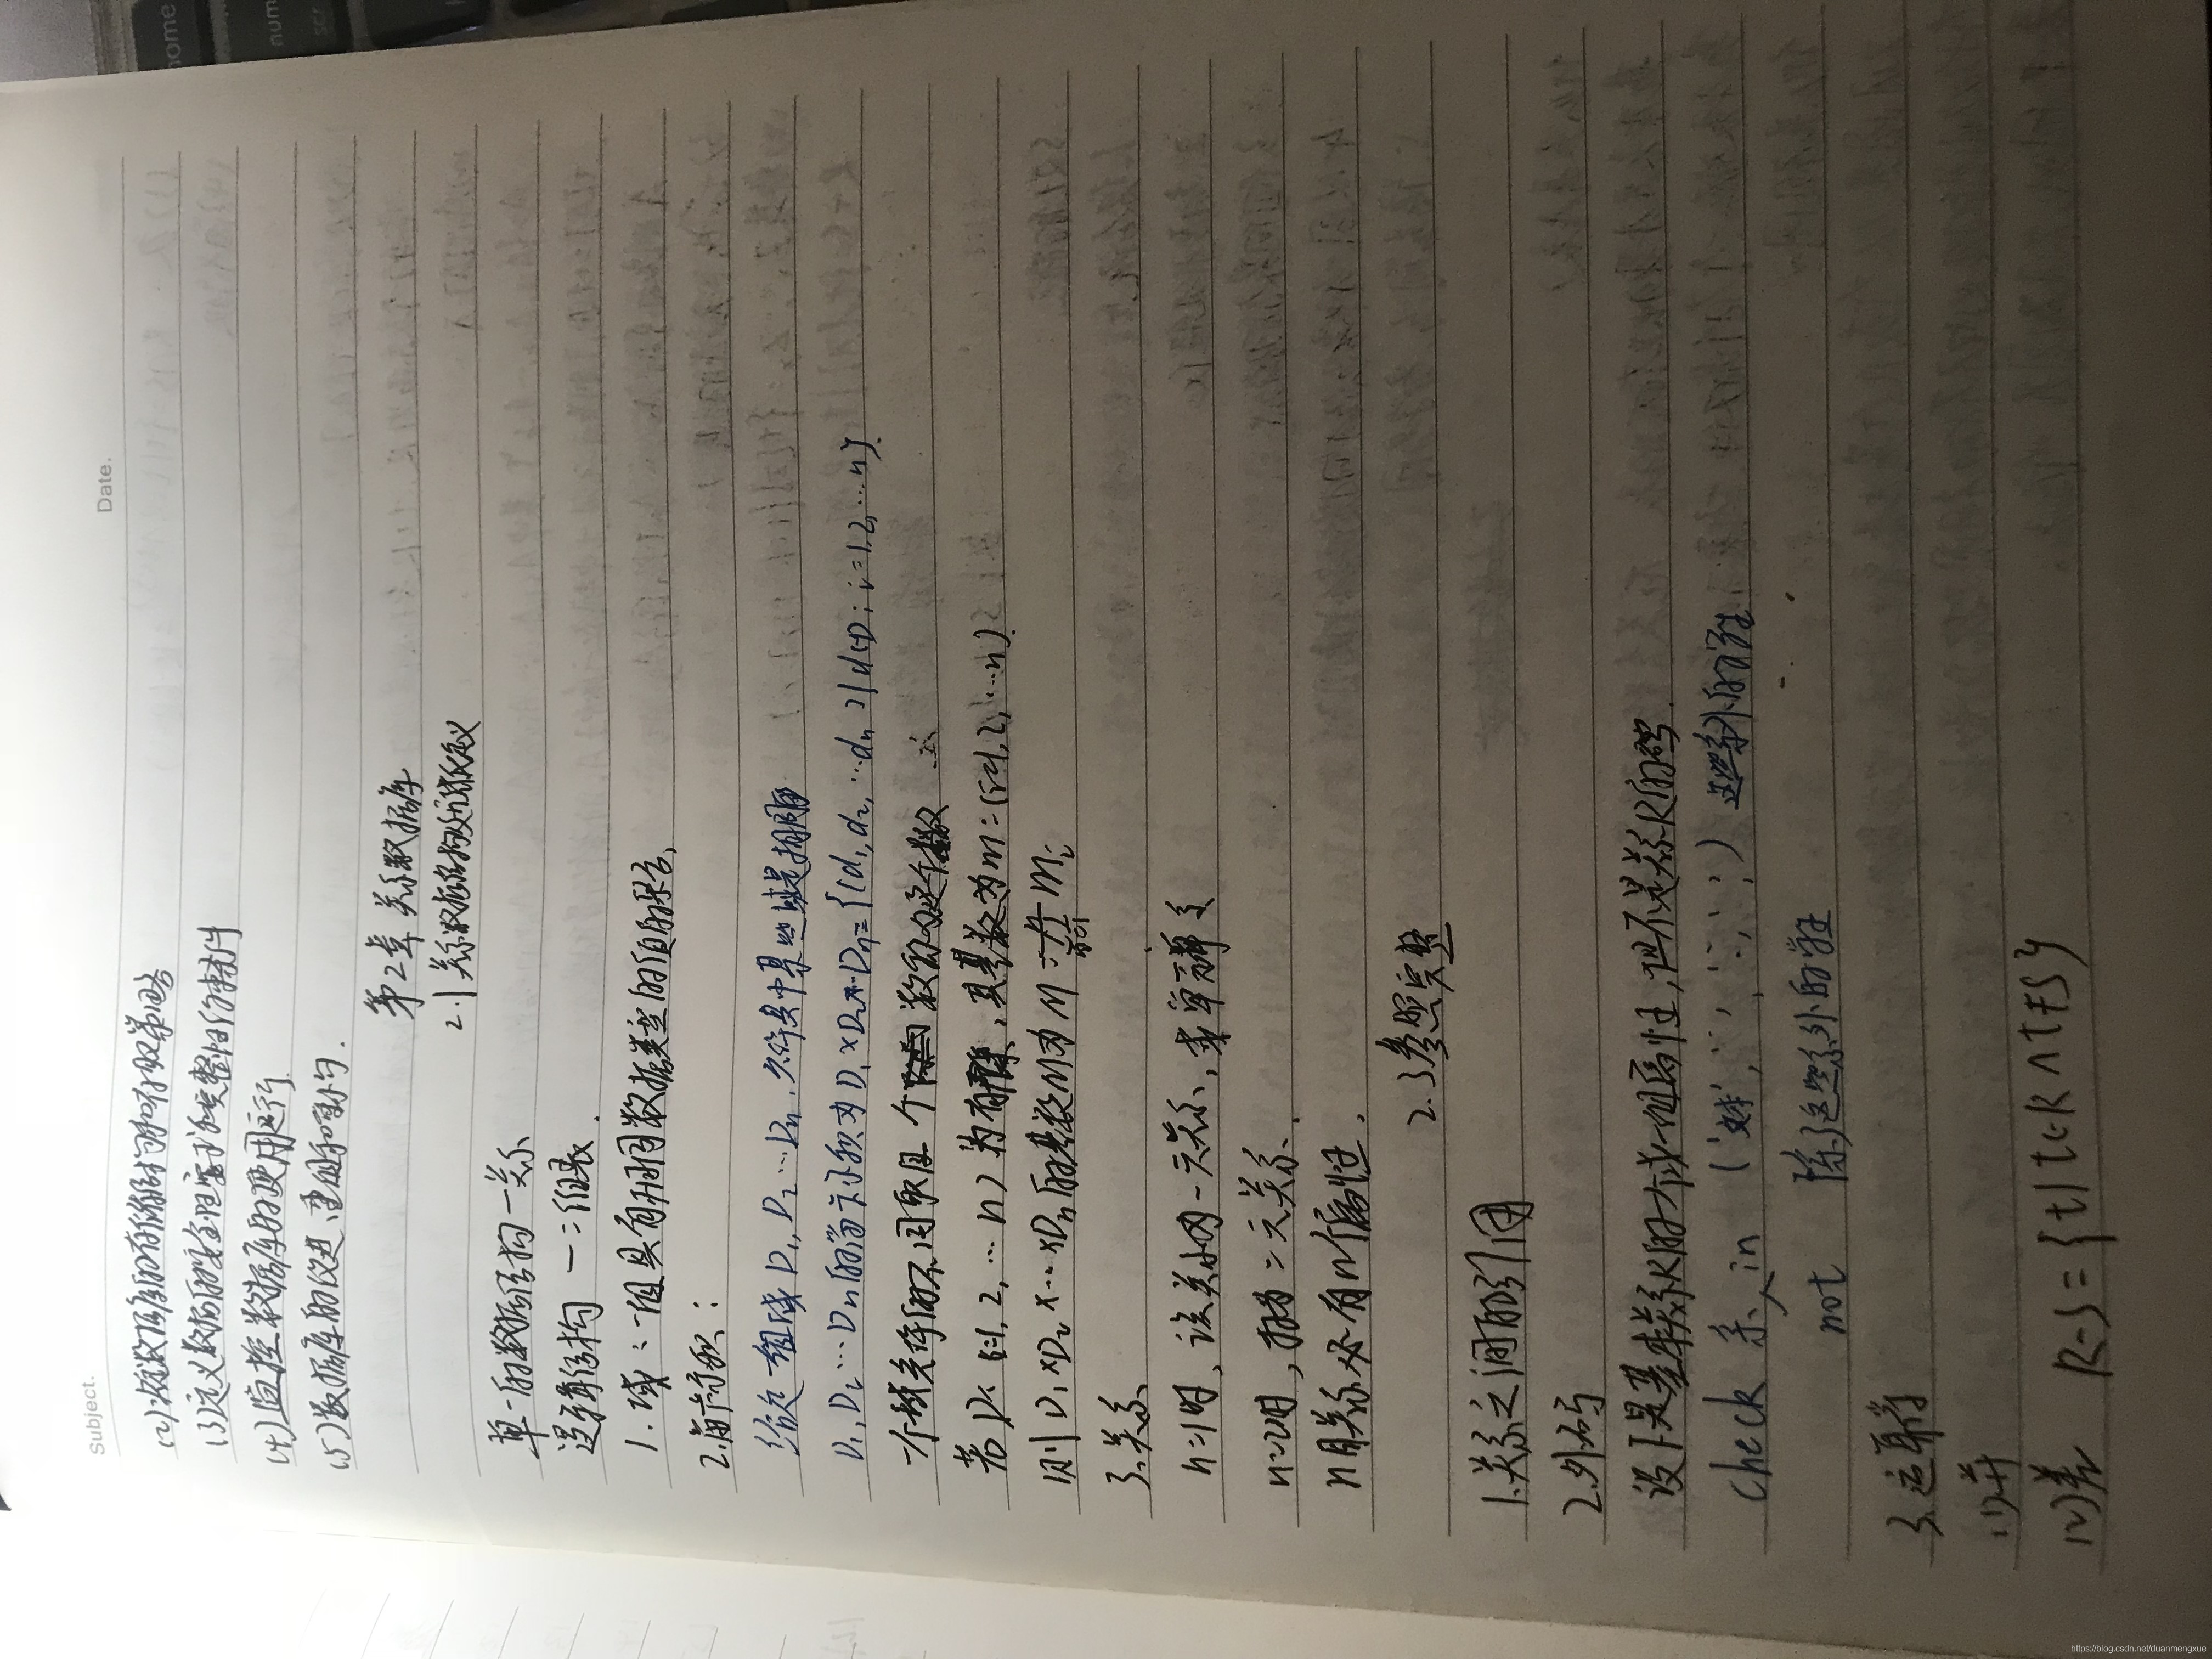 Subject.
Date.
(2) 数据库的存储结构和存取策略
(3) 定义数据的安全性要求和完整性约束条件
(4) 监控数据库的使用和运行
(5) 数据库的改进、重组和重构.
第2章 关系数据库
2.1 关系数据结构及形式化定义
单一的数据结构—关系
逻辑结构 — 二维表.
1. 域: 一组具有相同数据类型的值的集合.
2. 笛卡尔积:
给定一组域 D₁, D₂ … Dn, 允许其中某些域是相同的
D₁, D₂ … Dn 的笛卡尔积为 D₁×D₂×…Dn={(d₁, d₂, …dn)|di∈Di i=1.2,…n}.
一个域允许的不同取值个数为这个域的基数
若 Di (i=1, 2, … n) 为有限集, 其基数为 mi (i=1, 2, …n).
则 D₁×D₂×…×Dn 的基数M为 M = ∏ mi
3. 关系
n=1时, 该关系为一元关系, 或单元关系
n=2时, 称为二元关系.
n目关系必有n个属性.
2.3 参照完整
1. 关系之间的引用
2. 外码
设F是基本关系R的一个或一组属性, 但不是关系R的码.
check 系 in ( ) 这些系的学生
not 除了这些系外的学生
3. 运算符
(1) 并
(2) 差 R-S={t|t∈R∧t∉S}
https://blog.csdn.net/duanmengxue